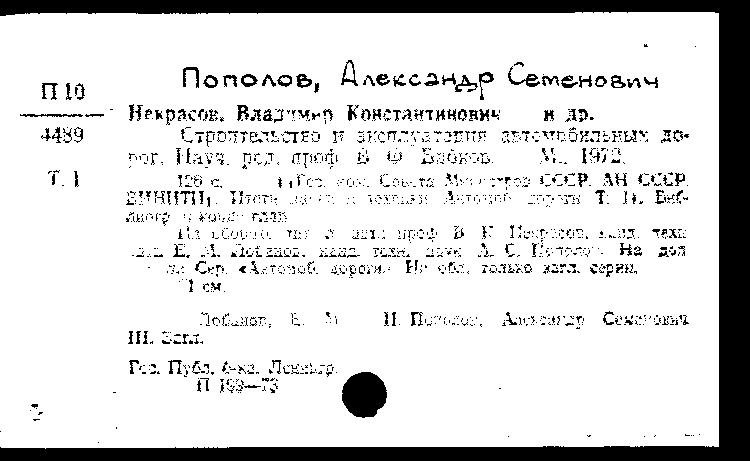 Пополов, Александр Семенович
П 10
4489
Т. 1
Некрасов, Владимир Константинович и др.
Строительство и эксплуатация автомобильных до-
рог. Науч. ред. проф. В. Ф. Бабков. М., 1972.
126 с. (Гос. ком. Совета Министров СССР. АН СССР.
ВИНИТИ). Итоги науки и техники. Автомоб. дороги Т. 1). Биб-
лиогр. в конце глав
На обороте тит. л. авт.: проф. В. К. Некрасов, канд. техн.
наук Е. М. Лобанов, канд. техн. наук А. С. Пополов. На доп.
Сер. «Автомоб. дороги» На обл. только загл. серии.
21 см.
Лобанов, Е. М. II. Пополов, Александр Семенович
III. Загл.
Гос. Публ. б-ка. Ленингр.
П 199—73